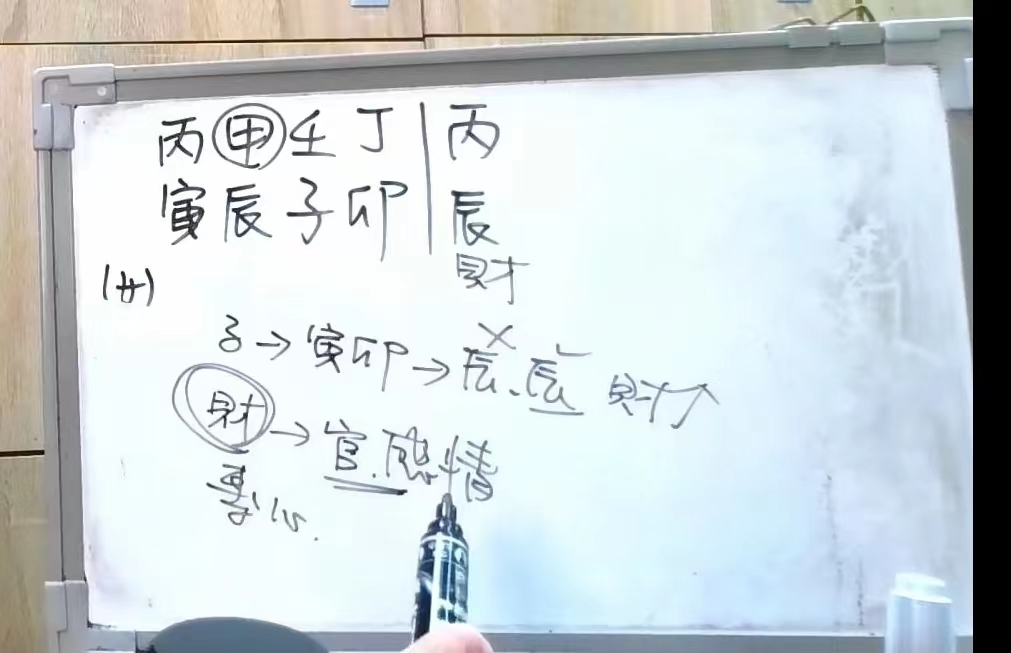 丙甲壬丁|丙
寅辰子卯|辰
財
(廿)
子→寅卯→辰、辰 財↗
財→官.感情
專心.